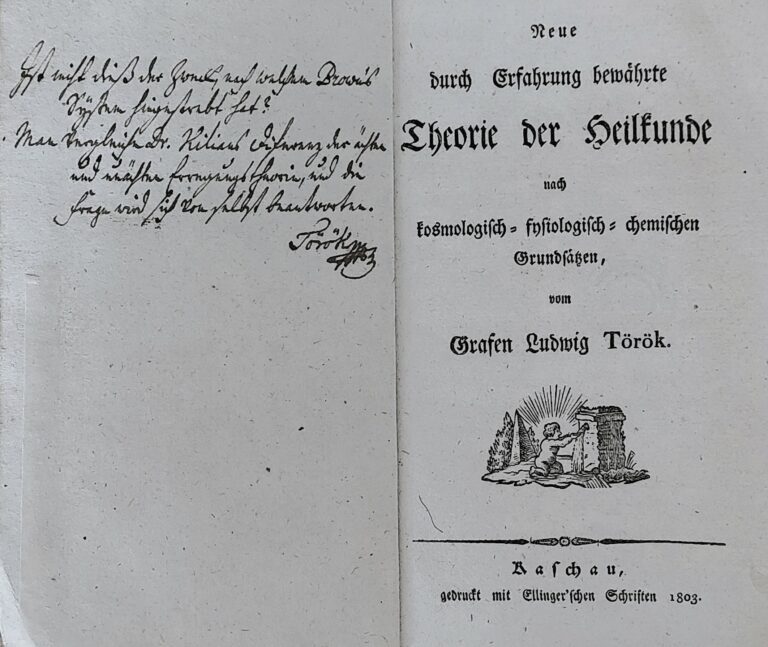 Ist nicht dieß der Zweck, nach welchem Brown's
System hingestrebt hat?
Man vergleiche Dr. Kilians Differenz der ächten
und unächten Erregungstheorie, und die
Frage wird sich von selbst beantworten.
Török
Neue
durch Erfahrung bewährte
Theorie der Heilkunde
nach
kosmologisch-fysiologisch-chemischen
Grundsätzen,
vom
Grafen Ludwig Török.
Kaschau,
gedruckt mit Ellinger'schen Schriften 1803.